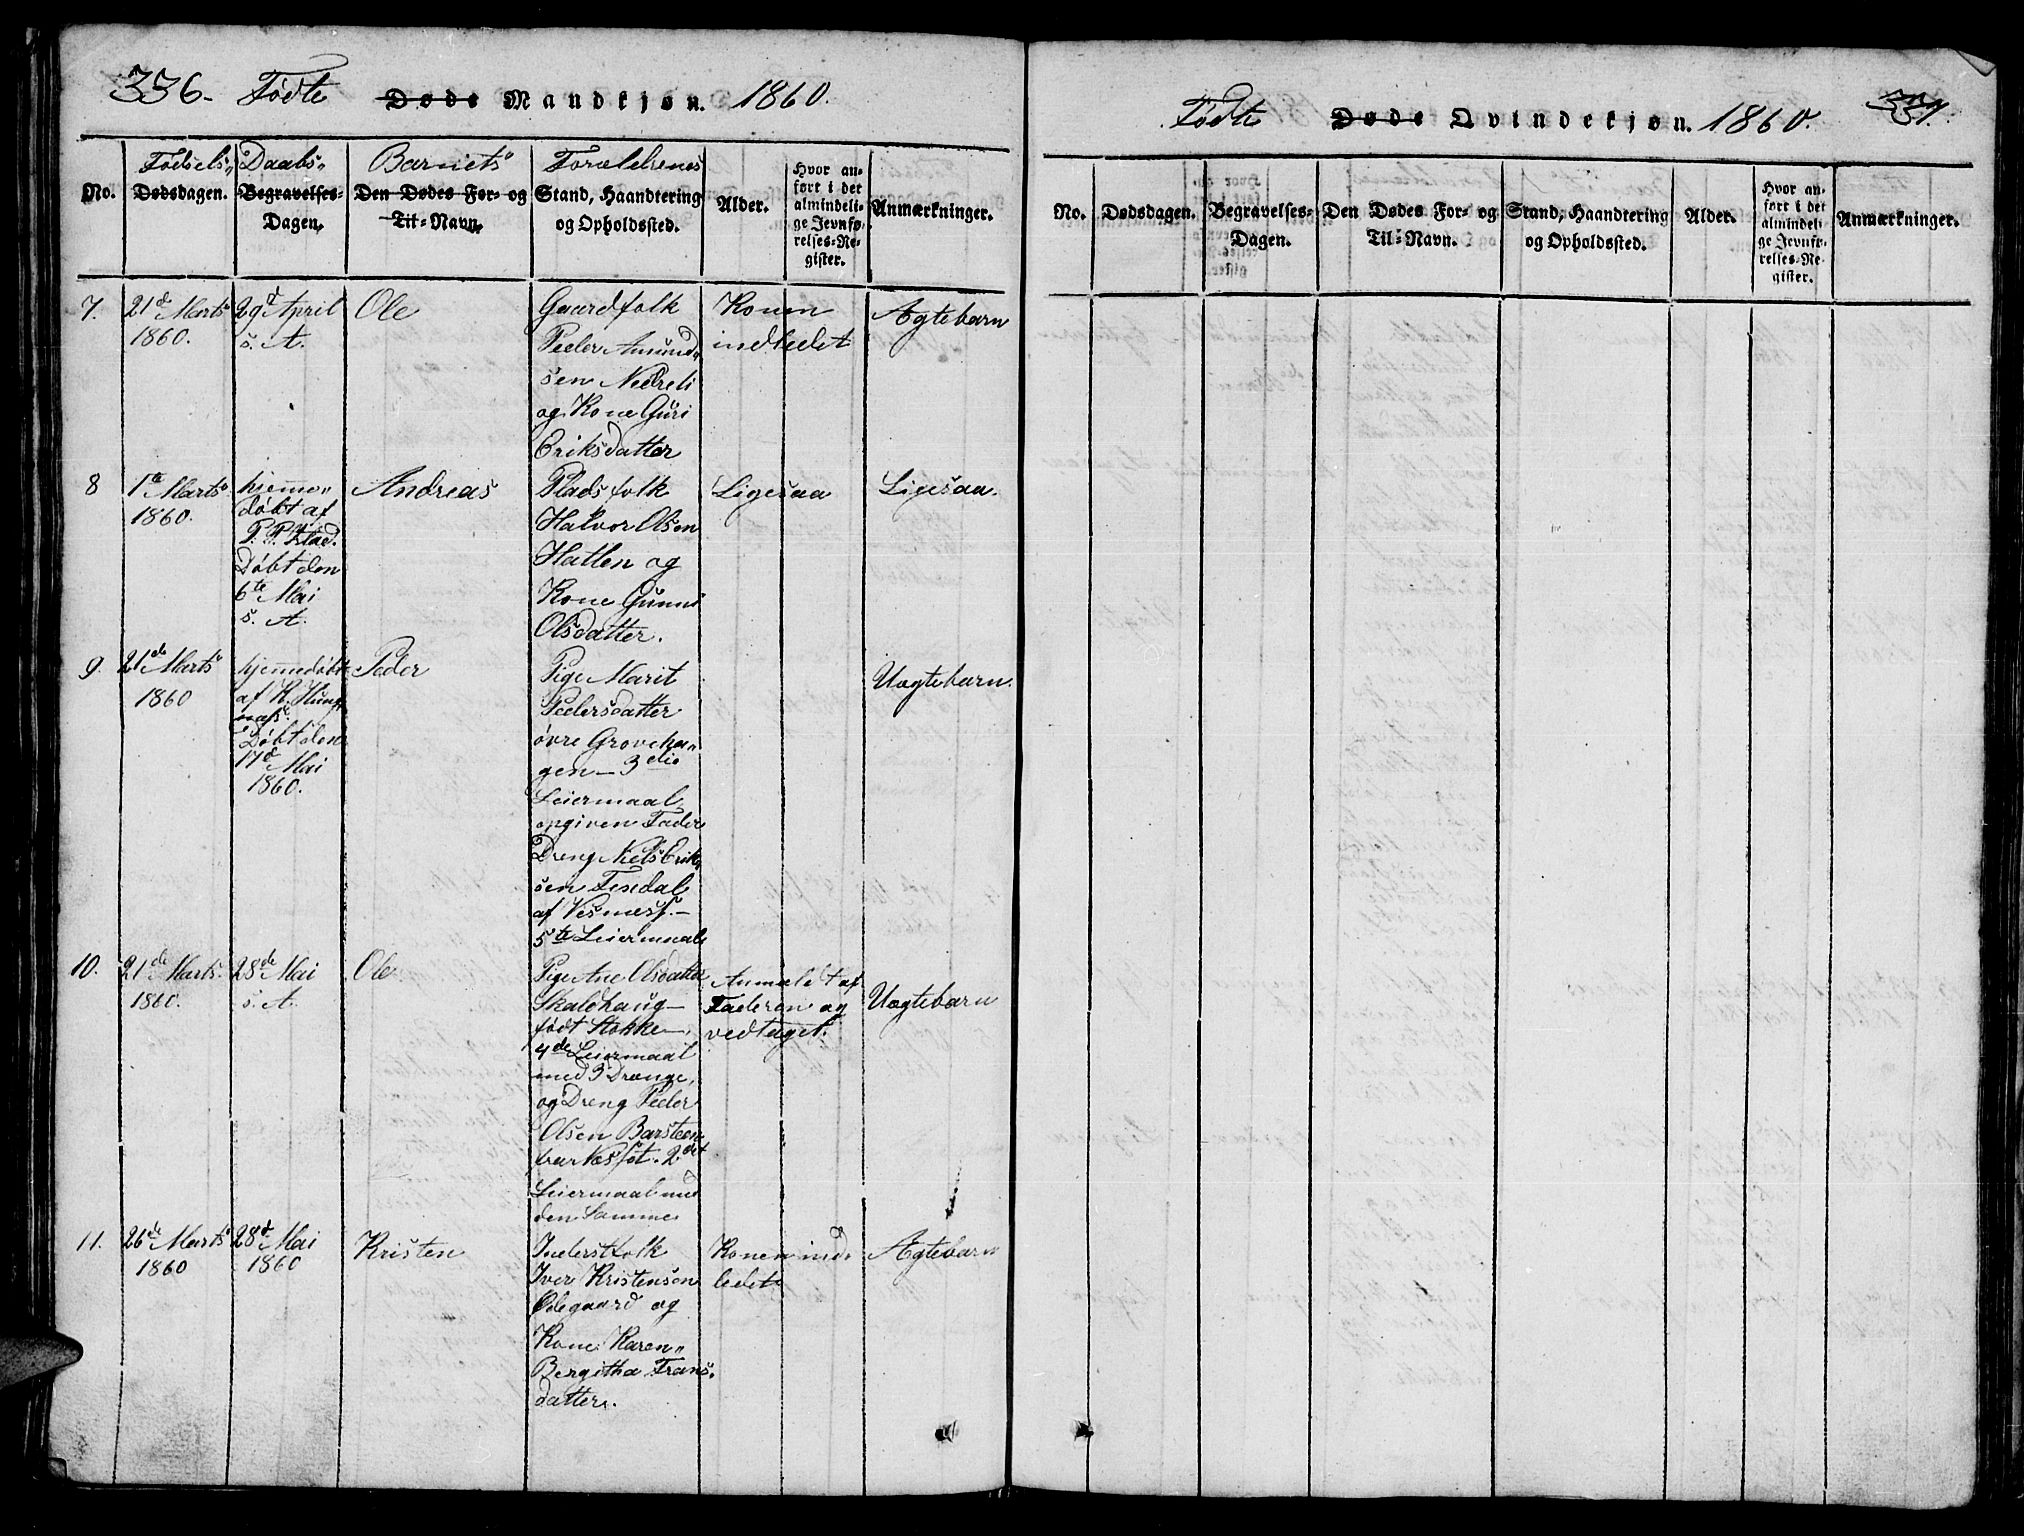 336. Fødte Døde Mandkjøn. 1860.
No.
Fødsels„
Dødsdagen.
Daabs„
Begravelses-
Dagen.
Barnets„
Den Dødes For- og
Til-Navn.
Forældrenes
Stand, Haandtering
og Opholdssted.
Alder.
Hvor an-
ført i det
almindeli-
ge Jevnfø-
relses-Re-
gister.
Anmærkninger.
7.
21d Marts
1860.
29d April
s. A.
Ole
Gaardfolk
Peder Amund„
sen Nedreli
og Kone Guri
Eriksdatter
Konen
indledet
Ægtebarn
8
1te Marts
1860.
hjemme„
døbt af
Døbt den
6te Mai
s. A.
Andreas
Pladsfolk
Halvor Olsen
Hatlen og
Kone Gunni
Olsdatter.
Ligesaa
Ligesaa.
9.
21de Marts
1860
hjemmedøbt
af
Døbt den
17d Mai
1860.
Peder
Pige Marit
Pedersdatter
øvre Groveha„
gen — 3die
Leiermaal,
opgiven Fader
Dreng Niels Erik„
sen
af
5te Leiermaal
Uægtebarn.
10.
21de Marts
1860.
28de Mai
s. A.
Ole
Pige Ane Olsdatter
Skaldhaug —
født Stokke —
4de Leiermaal
med 3 Drenge,
og Dreng Peder
Olsen Barsteen
2det
Leiermaal med
den Samme
Anmeldt af
Faderen og
vedtaget.
Uægtebarn
11.
26de Marts
1860
28d Mai
1860
Kristen
Inderstfolk
Iver Kristensen
Ødegaard og
Kone Karen„
Bergitha Frans„
datter.
Konen ind„
ledet
Ægtebarn
Fødte Døde Qvindekjøn. 1860. 337
No.
Dødsdagen.
Begravelses-
Dagen.
Den Dødes For- og
Til-Navn.
Stand, Haandtering
og Opholdssted.
Alder.
Hvor an-
ført i det
almindeli-
ge Jevnfø-
relses-Re-
gister.
Anmærkninger.